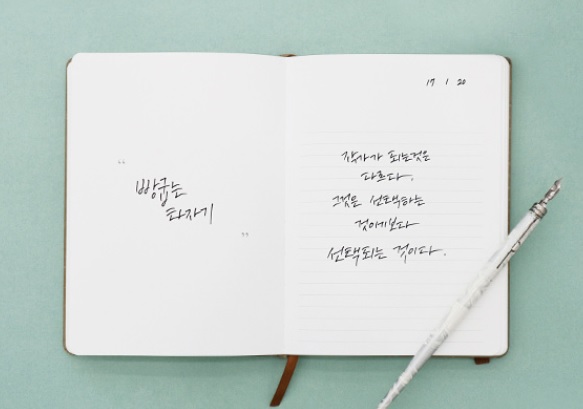 “
빵굽는
타자기
”
17 1 20
작가가 되는것은
다르다.
그것은 선택하는
것이기보다
선택되는 것이다.